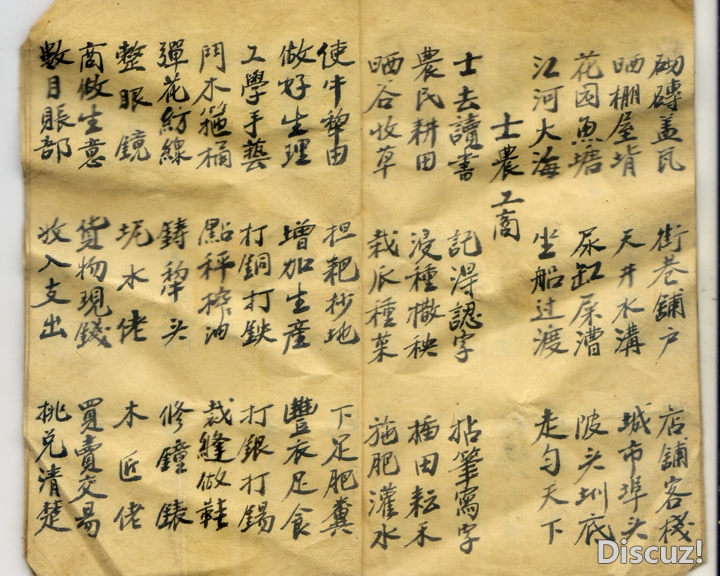 砌磚盖瓦 街巷鋪户 店鋪客棧
晒棚屋背 天井水溝 城市埠头
花园魚塘 尿缸屎漕 陂头圳底
江河大海 坐船过渡 走勻天下
士農工商
士去讀書 記得認字 拈筆寫字
農民耕田 浸種撒秧 插田耘禾
晒谷收草 栽瓜種菜 施肥灌水
使牛犂田 担耙抄地 下足肥糞
做好生理 增加生産 豐衣足食
工學手藝 打銅打鉄 打銀打錫
鬥木箍桶 點秤榨油 裁縫做鞋
彈花紡線 鋳犂头 修鐘錶
整眼鏡 坭水佬 木匠佬
商做生意 貨物現錢 買賣交易
數目賬部 收入支出 挑兑清楚
Discuz!